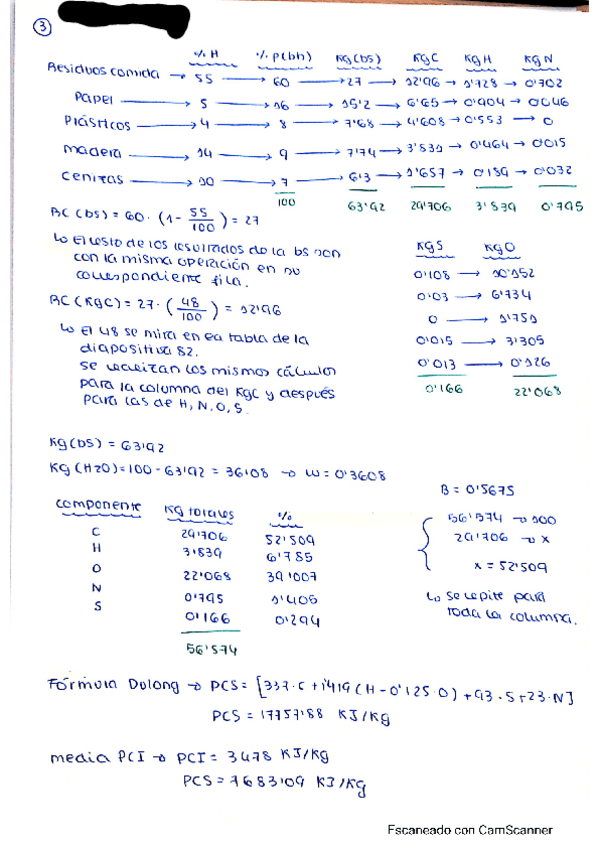 ③
% H % p(bh) Kg(bs) KgC KgH KgN
Residuos comida → 55 → 60 → 27 → 12'96 → 1'728 → 0'702
Papel → 5 → 16 → 15'2 → 6'65 → 0'904 → 0'046
Plásticos → 4 → 8 → 7'68 → 4'608 → 0'553 → 0
madera → 14 → 9 → 7'74 → 3'831 → 0'464 → 0'015
cenizas → 10 → 7 → 6'3 → 1'657 → 0'189 → 0'032
100 63'92 29'706 3'839 0'795
BC (bs) = 60 · (1 - 55/100) = 27
↳ El resto de los resultados de la bs son
con la misma operación en su
correspondiente fila.
BC (KgC) = 27 · (48/100) = 12'96
↳ El 48 se mira en la tabla de la
diapositiva 82.
se realizan los mismos cálculos
para la columna del KgC y después
para las de H, N, O, S.
KgS KgO
0'108 → 10'152
0'03 → 6'734
0 → 1'751
0'015 → 3'305
0'013 → 0'126
0'166 22'068
Kg(bs) = 63'92
Kg (H2O) = 100 - 63'92 = 36'08 → W = 0'3608
B = 0'5675
componente Kg totales %
C 29'706 52'509
H 3'839 6'785
O 22'068 39'007
N 0'795 1'405
S 0'166 0'294
56'574
56'574 → 100
29'706 → x
x = 52'509
↳ se repite para
toda la columna.
Fórmula Dulong → PCS = [337·C + 1419 (H - 0'125·O) + 93·S + 23·N]
PCS = 17757'88 KJ/Kg
media PCI → PCI = 3478 KJ/Kg
PCS = 7683'09 KJ/Kg
Escaneado con CamScanner